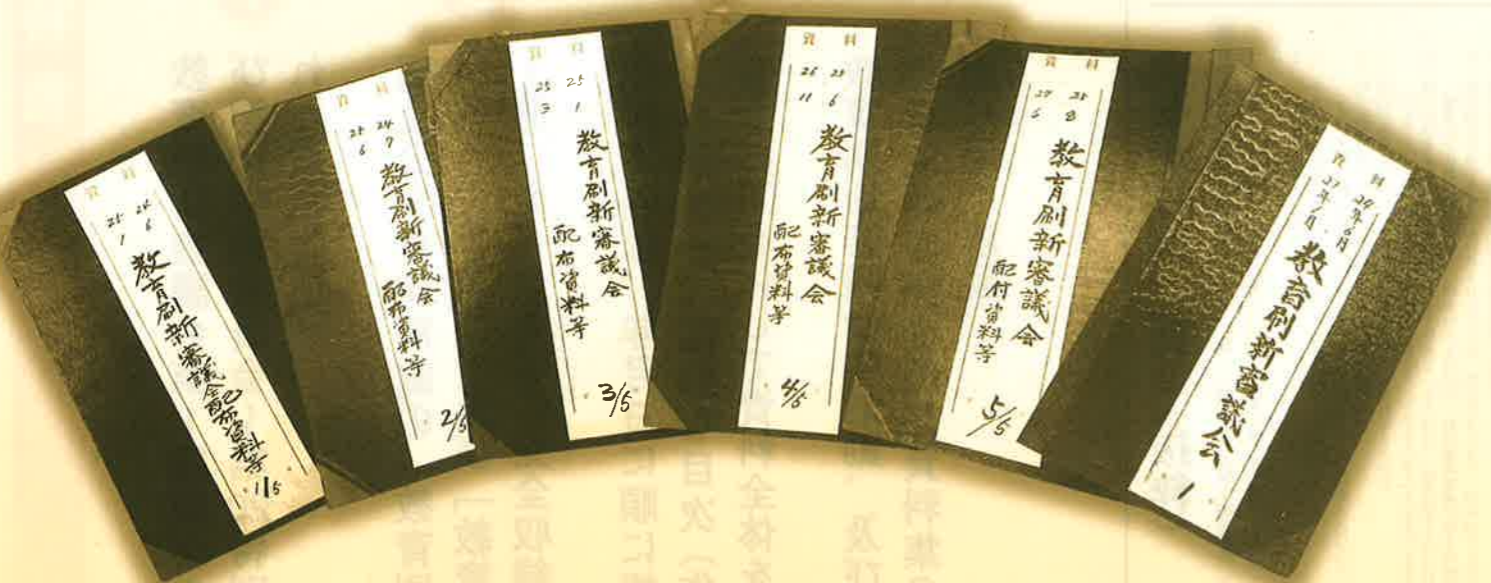 資料
24 6
25 1
教育刷新審議会配布資料等
1/5
資料
24 7
25 6
教育刷新審議会
配布資料等
2/5
資料
25 1
25 3
教育刷新審議会
配布資料等
3/5
資料
25 6
25 11
教育刷新審議会
配布資料等
4/5
資料
25 8
27 6
教育刷新審議会
配付資料等
5/5
資料
24年6月
27年6月
教育刷新審議会
1